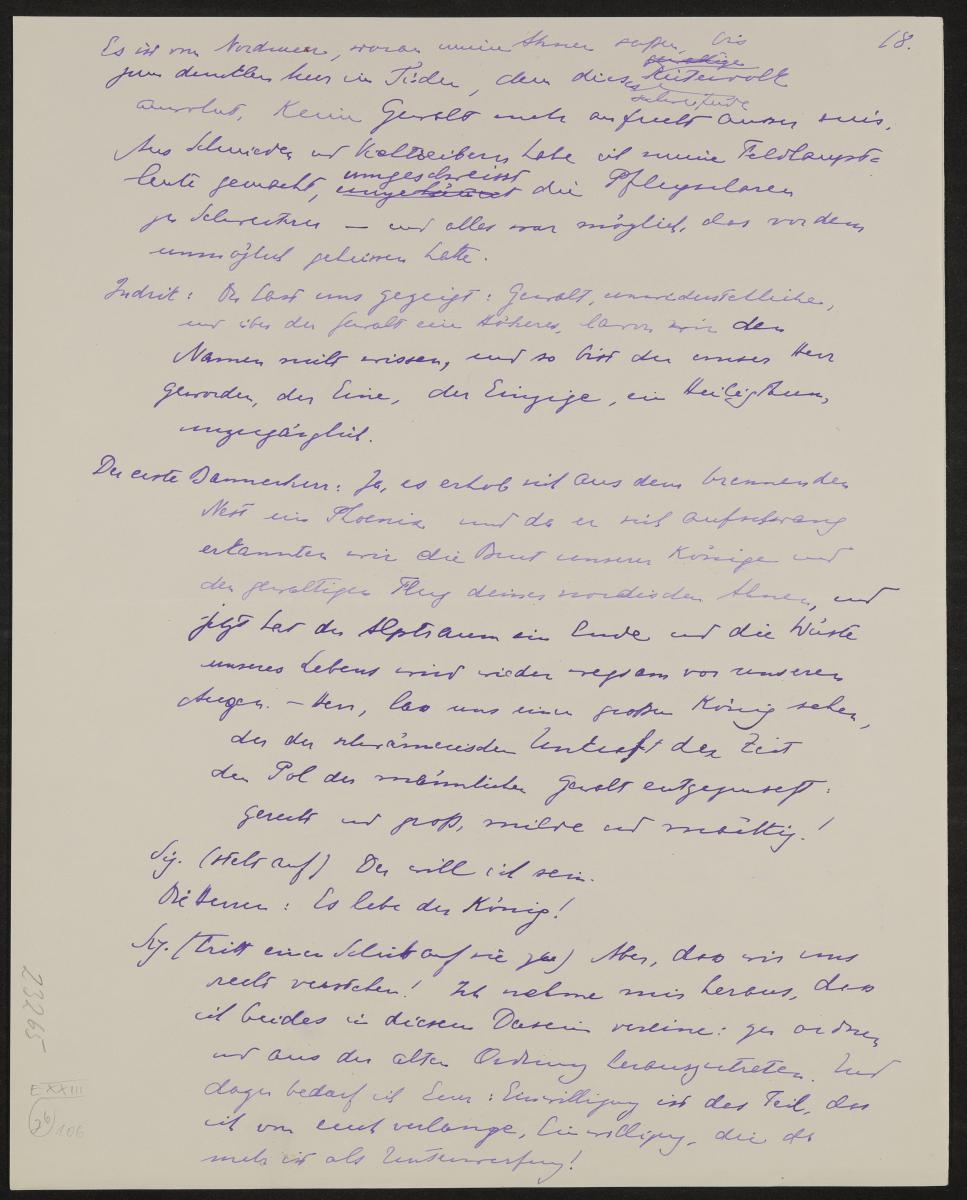 18.
Es ist vom Nordmeer, woran meine Ahnen sassen, bis
gewaltige
zum dunklen Meer im Süden, dem dieses Reitervolk
schweifende
anwohnt, keine Gewalt mehr aufrecht ausser mir.
Aus Schmieden und habe ich meine Feldhaupt=
umgeschweisst
leute gemacht, die Pflugscharen
zu Schwertern — und alles war möglich, das vordem
unmöglich geheissen hatte.
Indrik: Du hast uns gezeigt: Gewalt, unwiderstehliche,
und über der Gewalt ein Höheres, davon wir den
Namen nicht wissen, und so bist du unser Herr
geworden, der Eine, der Einzige, ein Heiligthum,
unzugänglich.
Der erste Bannerherr: Ja, es erhob sich aus dem brennenden
Nest ein Phoenix und da er sich aufschwang
erkannten wir die Brut unserer Könige und
den gewaltigen Flug deiner nordischen Ahnen, und
jetzt hat der Alptraum ein Ende und die Wüste
unseres Lebens wird wieder wegsam vor unseren
Augen. – Herr, lass uns einen grossen König sehen,
der der schwärmerischen Unkraft der Zeit
den Pol der männlichen Gewalt entgegensetzt:
gerecht und gross, milde und mächtig!
Sig. (steht auf) Der will ich sein.
Die Herren: Es lebe der König!
Sig. (tritt einen Schritt auf sie zu) Aber, dass wir uns
recht verstehen! Ich nehme mir heraus, dass
ich beides in diesem Dasein vereine: zu ordnen
und aus der alten Ordnung herauszutreten. Und
dazu bedarf ich Euer: Einwilligung ist das Teil, das
ich von euch verlange, Einwilligung, die da
mehr ist als Unterwerfung!
23265
E XXIII
26 106